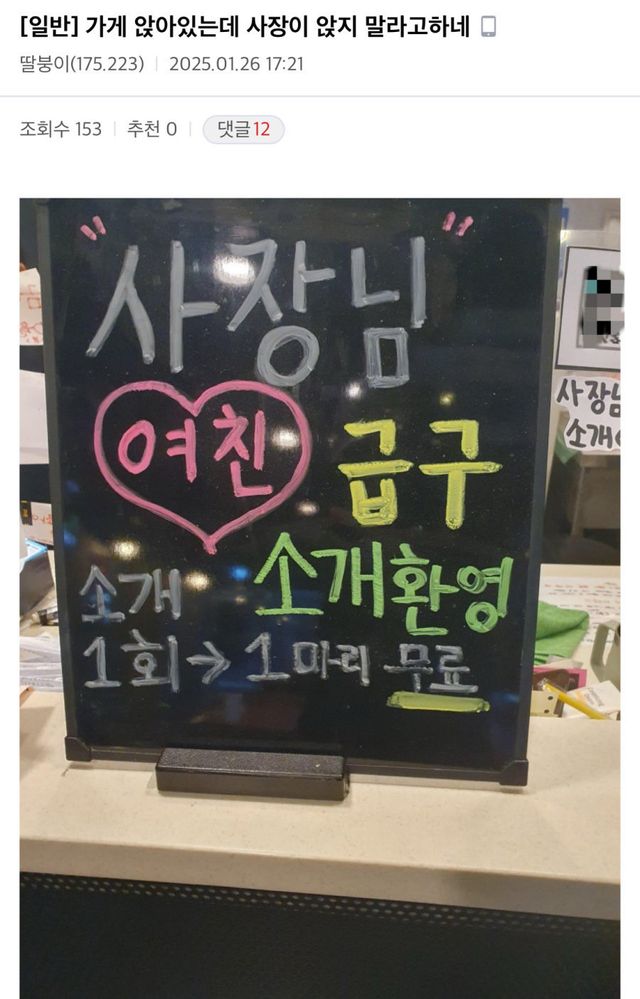 [일반] 가게 앉아있는데 사장이 앉지 말라고하네
딸붕이(175.223) 2025.01.26 17:21
조회수 153 추천 0 댓글 12
"사장님"
여친 급구
소개환영
소개
1회→1마리 무료
사장님
소개